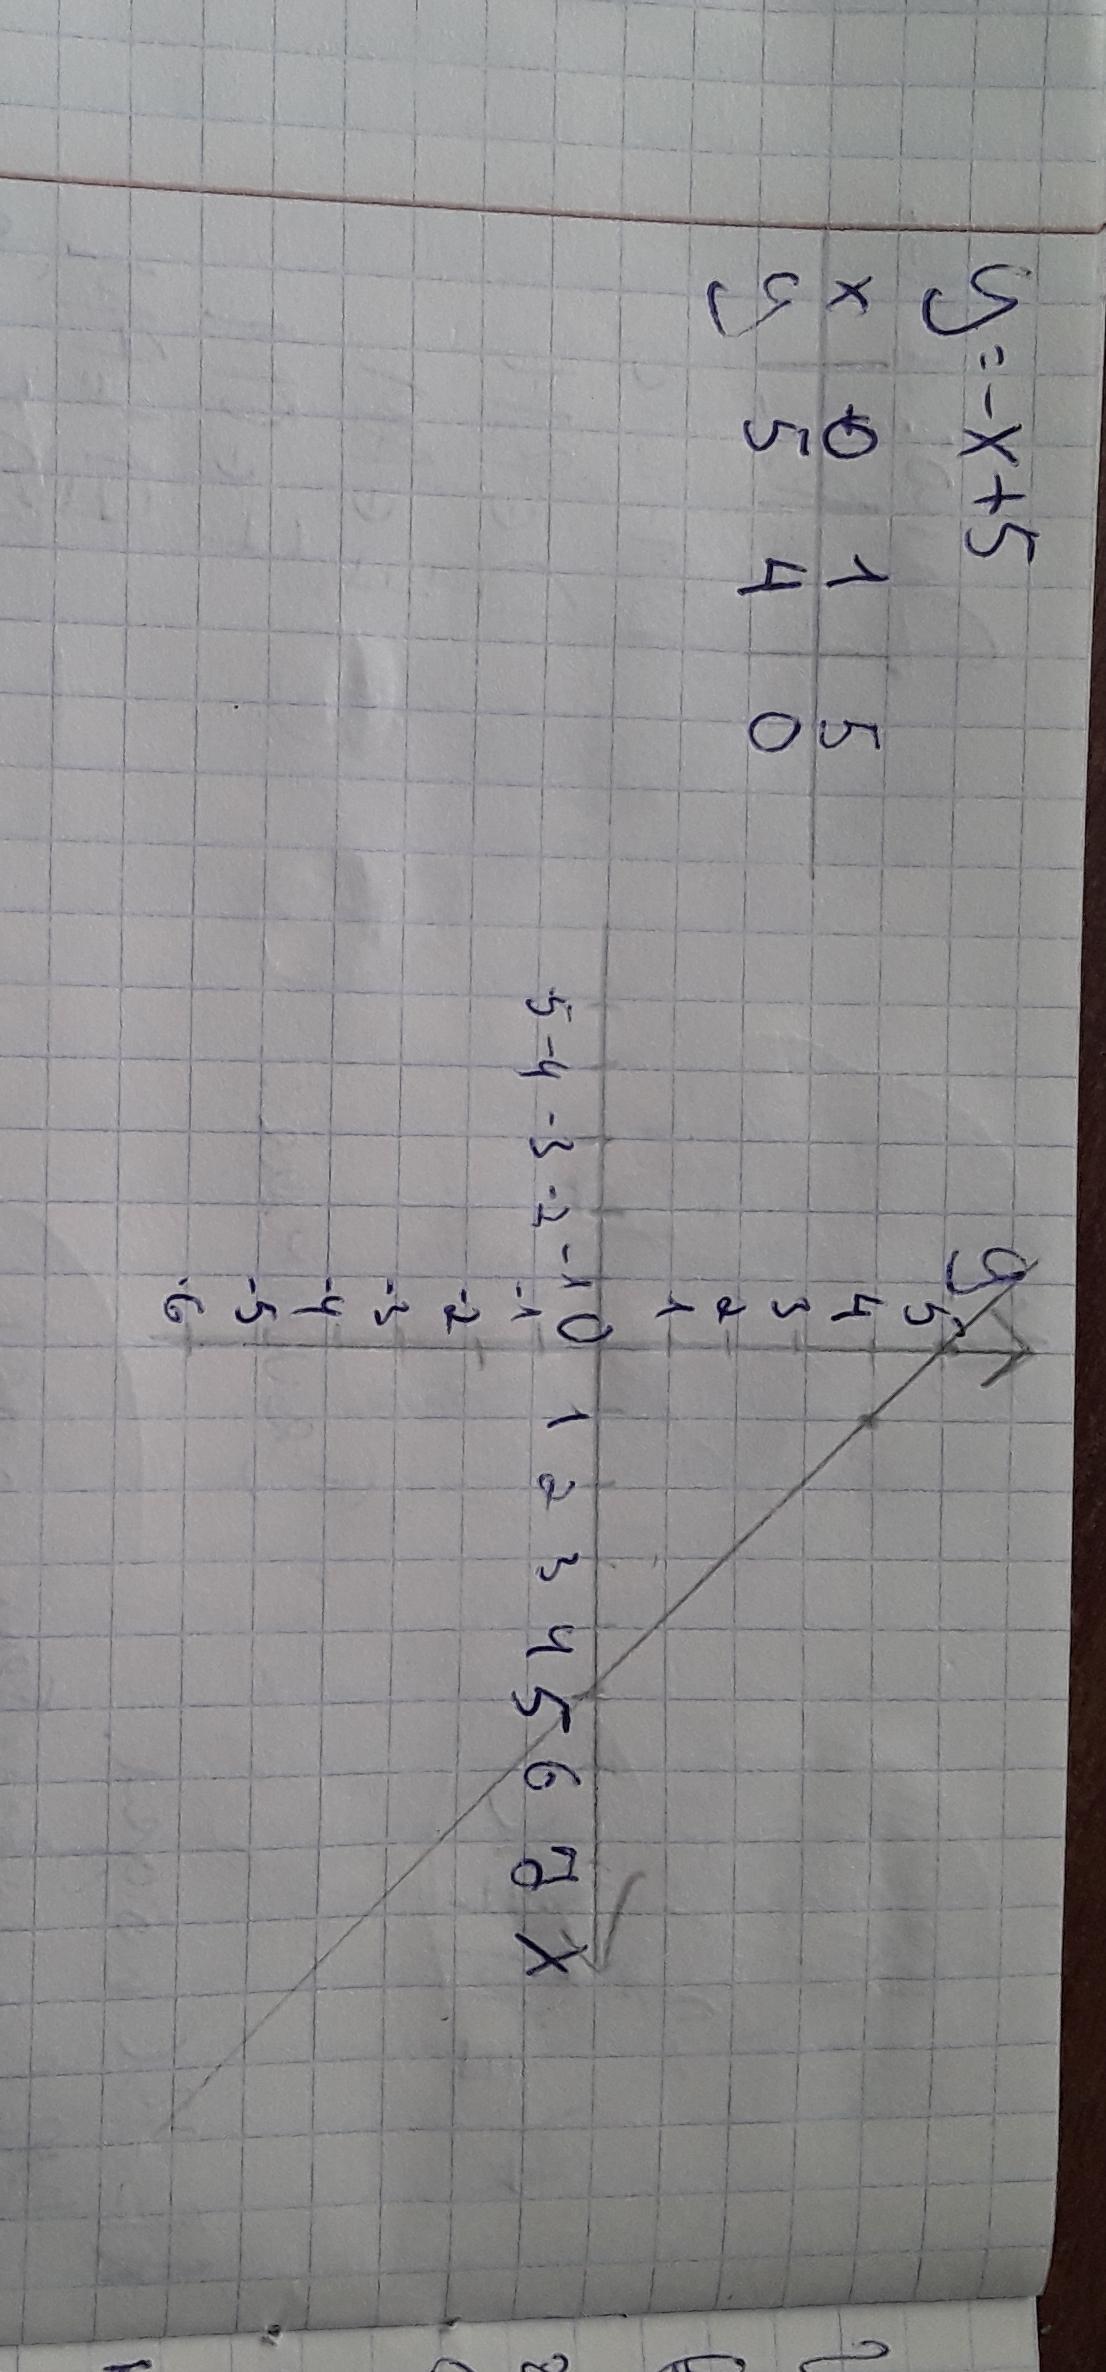 y=-x+5
x 0 1 5
y 5 4 0
y
5
4
3
2
1
5 -4 -3 -2 -1 0 1 2 3 4 5 6 7 x
-1
-2
-3
-4
-5
-6